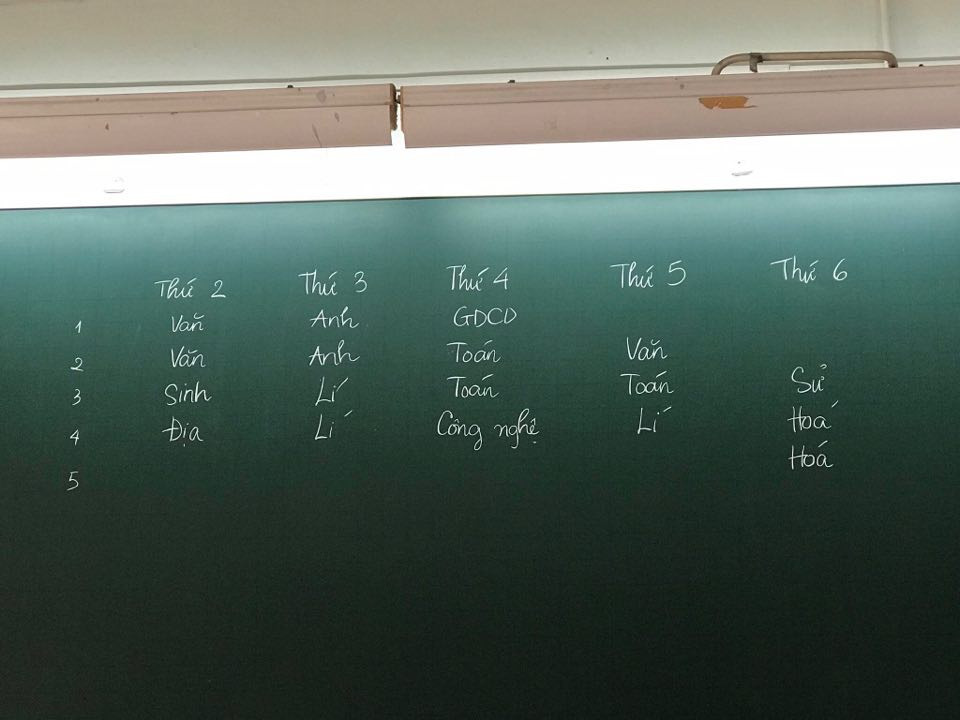 Thứ 2 Thứ 3 Thứ 4 Thứ 5 Thứ 6
1 Văn Anh GDCD
2 Văn Anh Toán Văn
3 Sinh Lí Toán Toán Sử
4 Địa Lí Công nghệ Lí Hoá
5 Hoá